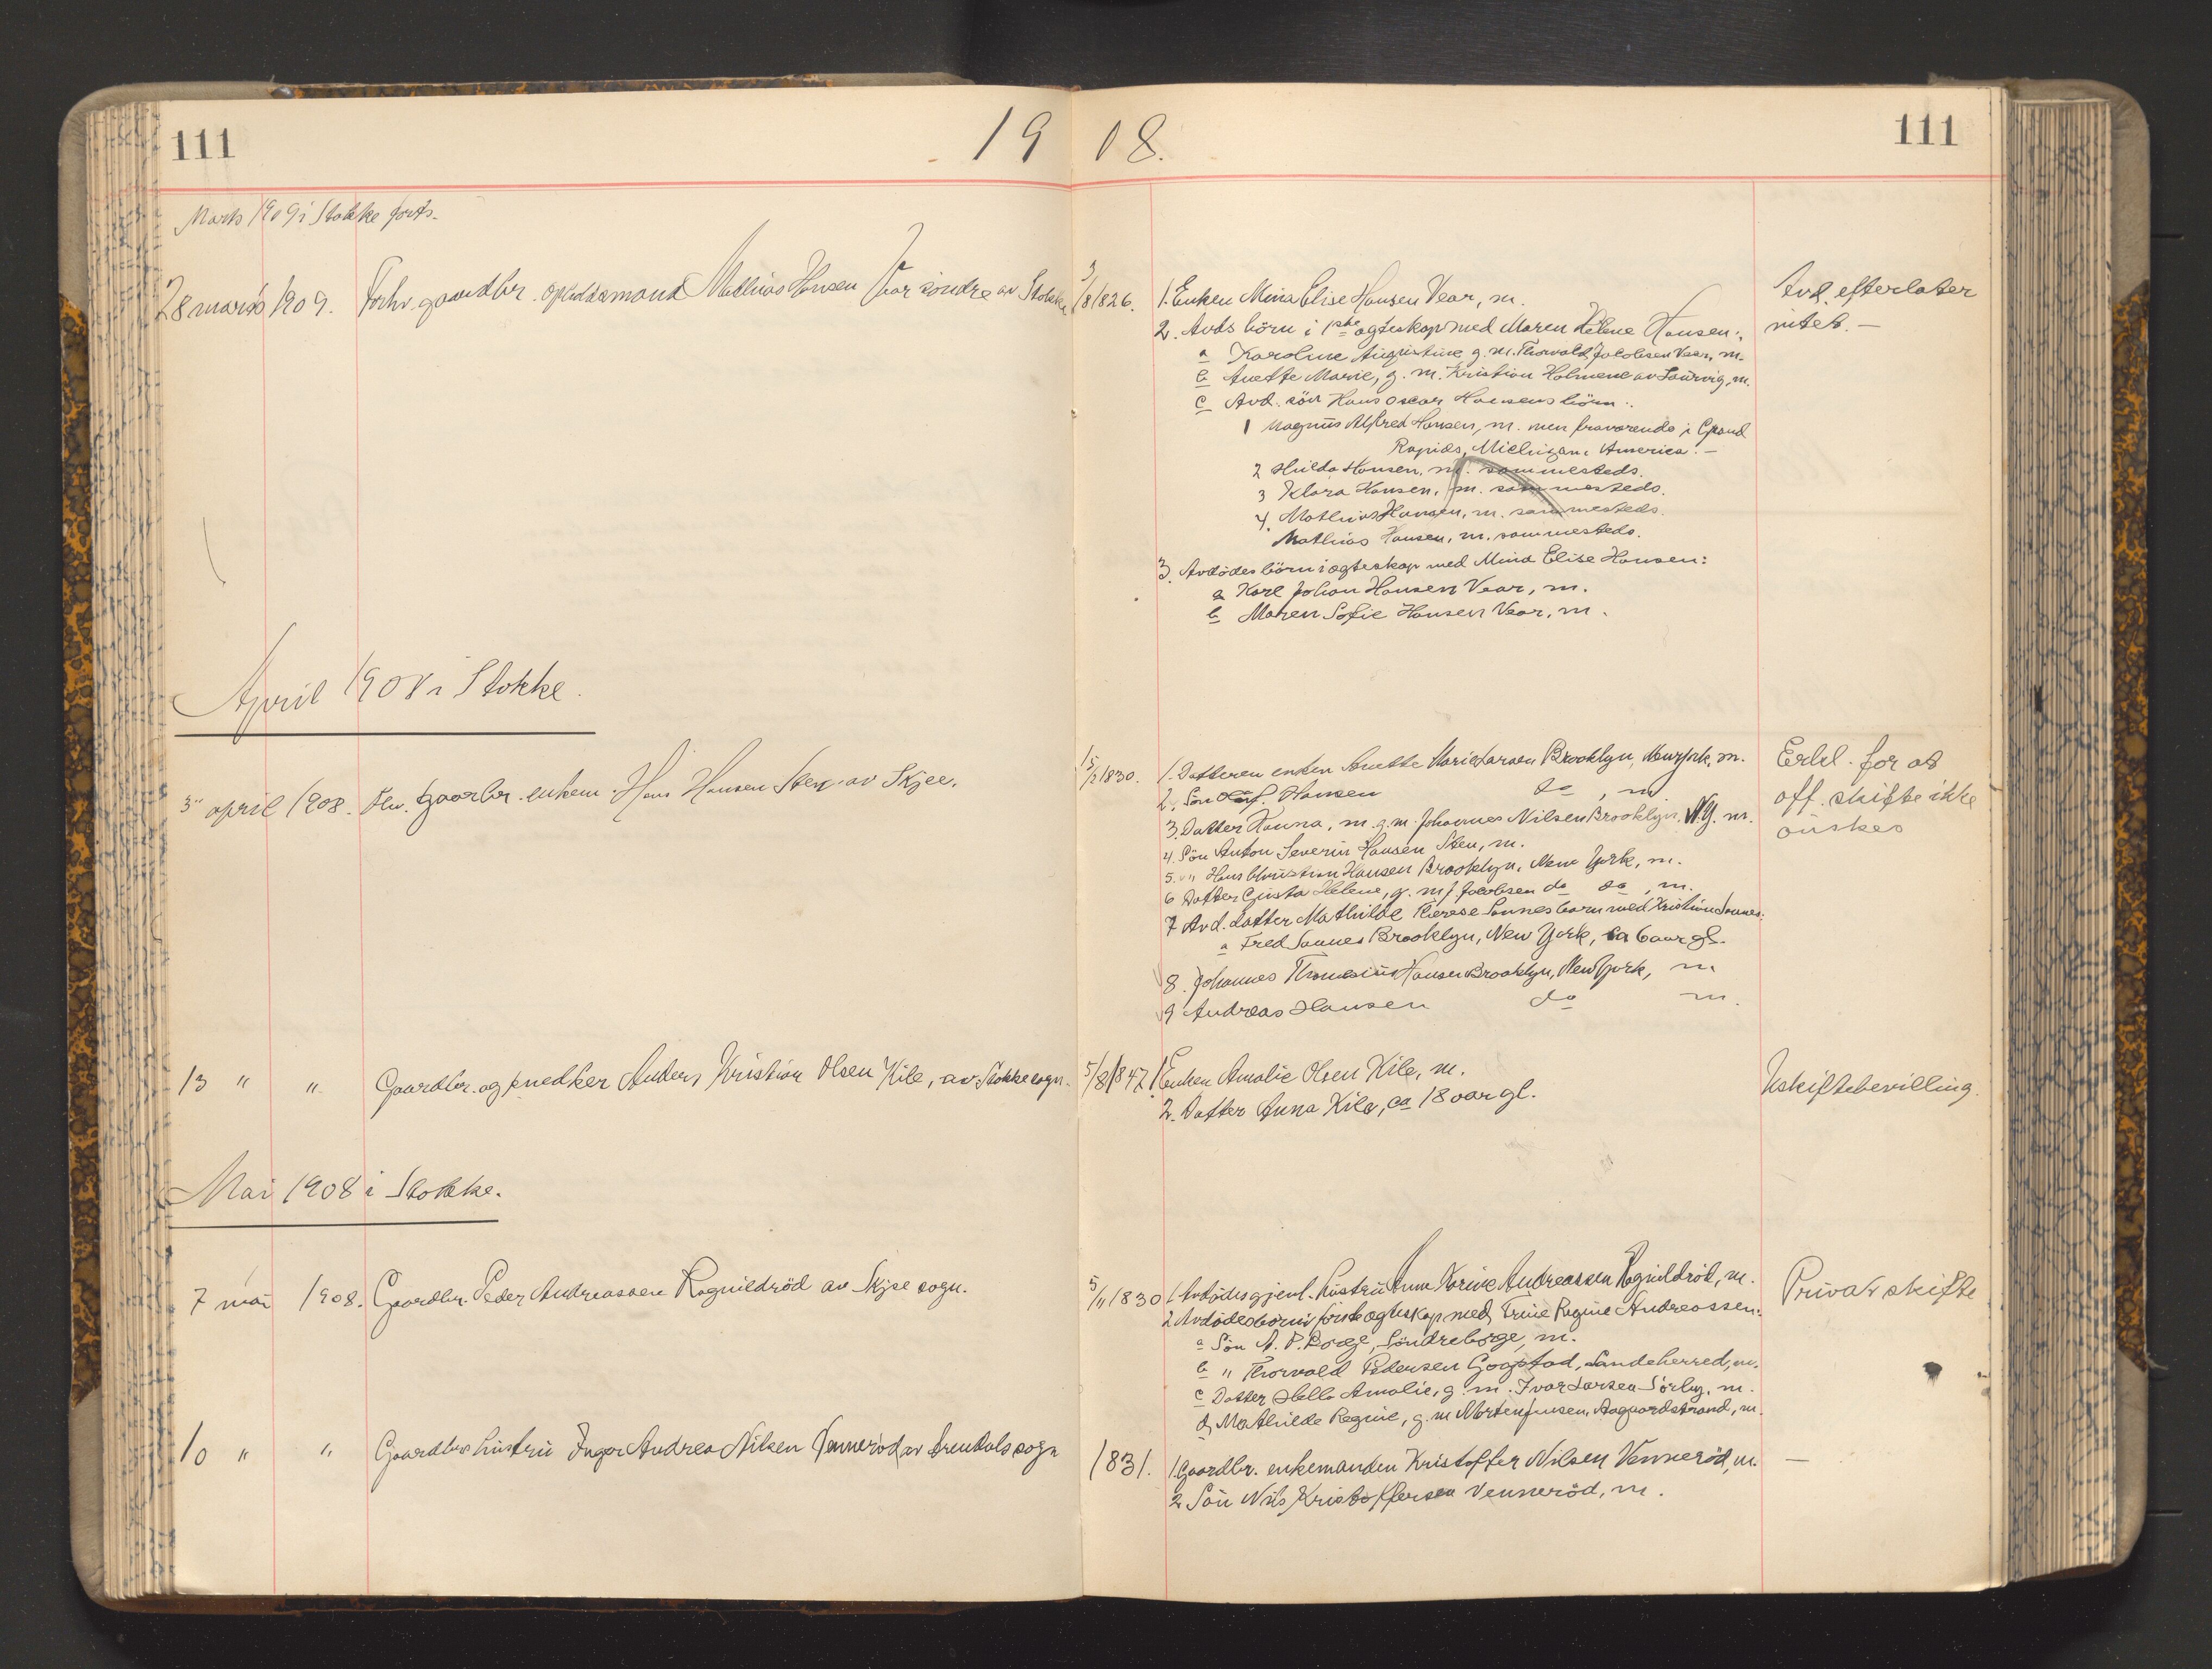 111
1908.
111
Marts 1909 i Stokke forts.
28 marts 1909. Forhv. gaardbr. opholdsmand Mathias Hansen Vear söndre av Stokke
3/8 1826.
1. Enken Mina Elise Hansen Vear, m.
2. Avds börn i 1ste egteskap med Maren Helene Hansen:
a Karoline Augustine g. m. Thorvald Jakobsen Vear, m.
b Anette Marie, g. m. Kristian Holmene av Laurvig, m.
c Avd. sön Hans Oscar Hansens börn:
1 Magnus Alfred Hansen, m. men fraværende i Grand
Rapids, Michigan, America. -
2 Hilda Hansen, m. sammesteds.
3 Klara Hansen, m. sammesteds.
4. Mathias Hansen, m. sammesteds.
Mathias Hansen, m. sammesteds.
3. Avdödes börn i egteskap med Mina Elise Hansen:
a Karl Johan Hansen Vear, m.
b Maren Sofie Hansen Vear, m.
Avd. efterlater
intet. -
April 1908 i Stokke.
3 april 1908. Fhv. gaarbr. enkem. Hans Hansen Sten av Skjee.
15/2 1830.
1. Datteren enken Anette Marie Larsen Brooklyn, Newyork, m.
2. Sön Olaf Hansen do, m
3. Datter Hanna, m. g. m. Johannes Nilsen Brooklyn, N.Y. m.
4. Sön Anton Severin Hansen Sten, m.
5. " Hans Christian Hansen Brooklyn, New York, m.
6 Datter Gusta Helene, g. m. J. Jacobsen do do, m.
7 Avd. datter Mathilde Therese Sannes barn med Kristian Sannes:
a Fred Sannes Brooklyn, New York, ca 6 aar gl.
8. Johannes Thomesius Hansen Brooklyn, New York, m
9 Andreas Hansen do m.
Erkl. for at
off. skifte ikke
önskes
13 " " Gaardbr. og snedker Anders Kristian Olsen Kile, av Stokke sogn.
5/8 1847.
1. Enken Amalie Olsen Kile, m.
2. Datter Anna Kile, ca 18 aar gl.
Uskiftebevilling.
Mai 1908 i Stokke.
7 mai 1908. Gaardbr. Peder Andreassen Ragnildröd av Skjee sogn.
5/11 1830
1. Avdödes gjenl. hustru Anne Karine Andreassen Ragnildröd, m.
2 Avdödes börn i förste egteskap med Trine Regine Andreassen:
a Sön A. P. Borge, Söndreborge, m.
b " Thorvald Pedersen Gogstad, Sandeherred, m.
c Datter Hella Amalie, g. m. Ivar Larsen Sörby, m.
d Mathilde Regine, g. m. Morten Jensen, Aagaardstrand, m.
Privat skifte
10 " " Gaardbr. hustru Inger Andrea Nilsen Venneröd av Arendals sogn
1831.
1. Gaardbr. enkemanden Kristoffer Nilsen Venneröd, m.
2 Sön Nils Kristoffersen Venneröd, m.
-